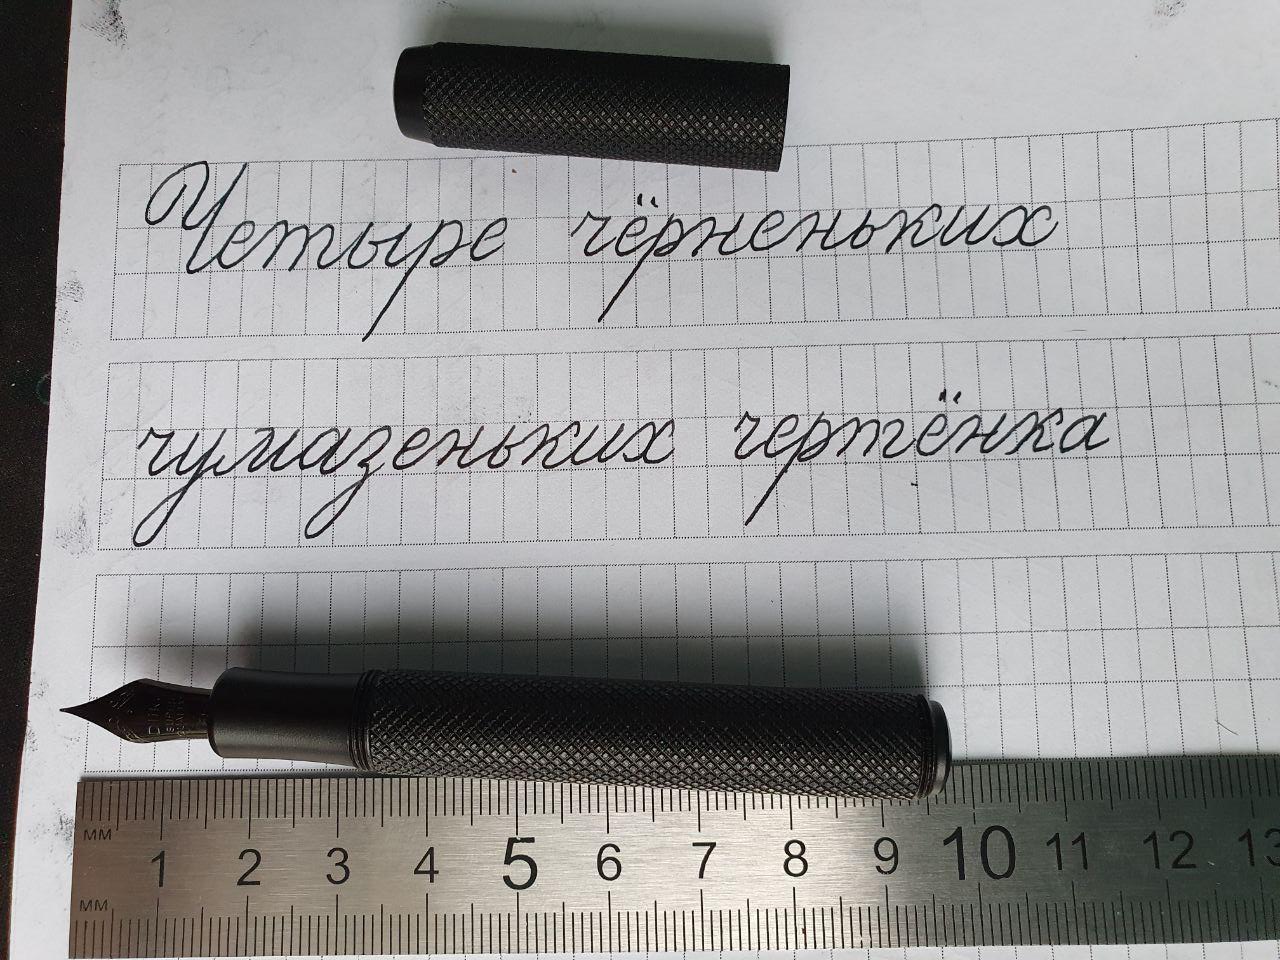 Четыре чёрненьких
чумазеньких чертёнка
мм
1 2 3 4 5 6 7 8 9 10 11 12 13
мм